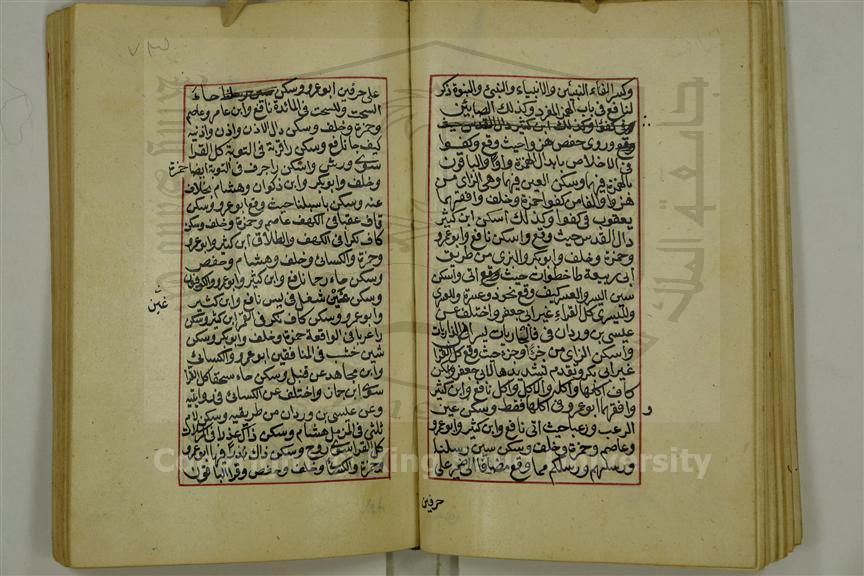 وكسر الفاء النبيين والانبياء والنبئ والنبوة ذكر
لنافع في باب الهمز المفرد وكذلك الصابين
وقع وروى حفص هزوا حيث وقع وكفوا
في الاخلاص بابدال الهمزة واوا والباقون
بالهمزة فيهما وسكن العين فيهما وهي الزاي من
هزوا والفاء من كفوا حمزة وخلف وافقهما
يعقوب في كفوا وكذلك اسكن ابن كثير
دال القدس حيث وقع واسكن نافع وابو عمرو
وحمزة وخلف وابو بكر والبزي من طريق
ابي ربيعة طا خطوات حيث وقع اتى واسكن
سين اليسر والعسر كيف وقع نحو ذو عسرة والعسرى
ولليسرى كل القراء غير ابي جعفر واختلف عن
عيسى بن وردان في فالجاريات يسرا في الذاريات
واسكن الزاي من جزءا وجزء حيث وقع كل القرا
غير ابي بكر وتقدم تشديدها لابي جعفر وسكن
كاف اكلها واكله والاكل واكل نافع وابن كثير
وافقهما ابو عمرو في اكلها فقط وسكن عين
الرعب ورعبا حيث اتى نافع وابن كثير وابو عمرو
وعاصم وحمزة وخلف وسكن سين رسلنا
ورسلهم ورسلكم مما وقع مضافا الى ضمير على
حرفين
على حرفين ابو عمرو وسكن حاء
السحت وللسحت في المائدة نافع وابن عامر وعاصم
وحمزة وخلف وسكن ذال الاذن واذن واذنيه
كيف جا نافع وسكن را قربة في التوبة كل القرا
سوى ورش واسكن را جرف في التوبة ايضا حمزة
وخلف وابو بكر وابن ذكوان وهشام بخلاف
عنه وسكن با سبلنا حيث وقع ابو عمرو وسكن
قاف عقبا في الكهف عاصم وحمزة وخلف وسكن
كاف نكرا في الكهف والطلاق ابن كثير وابو عمرو
وحمزة والكسائي وخلف وهشام وحفص
وسكن حاء رحما نافع وابن كثير وابو عمرو والكوفيون
وسكن غين شغل في يس نافع وابن كثير
غين
وابو عمرو وسكن كاف نكر في القمر ابن كثير وسكن
را عربا في الواقعة حمزة وخلف وابو بكر وسكن
شين خشب في المنافقين ابو عمرو والكسائي
وابن مجاهد عن قنبل وسكن حاء سحقا كل القرا
سوى ابن جماز واختلف عن الكسائي في روايتيه
وعن عيسى بن وردان من طريقيه وسكن لام
ثلثي في المزمل هشام وسكن ذال عذرا
كل القرا سوى روح وسكن ذال نذرا ابو عمرو
وحمزة والكسائي وخلف وحفص وقرا الباقون